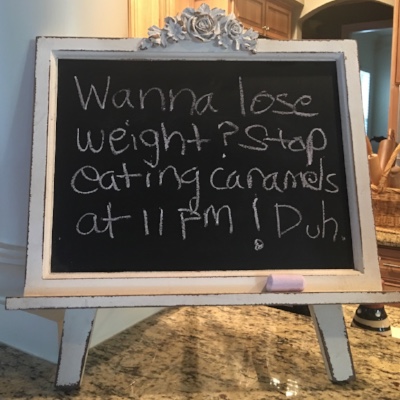 Wanna lose
weight? Stop
eating caramels
at 11 PM! Duh.